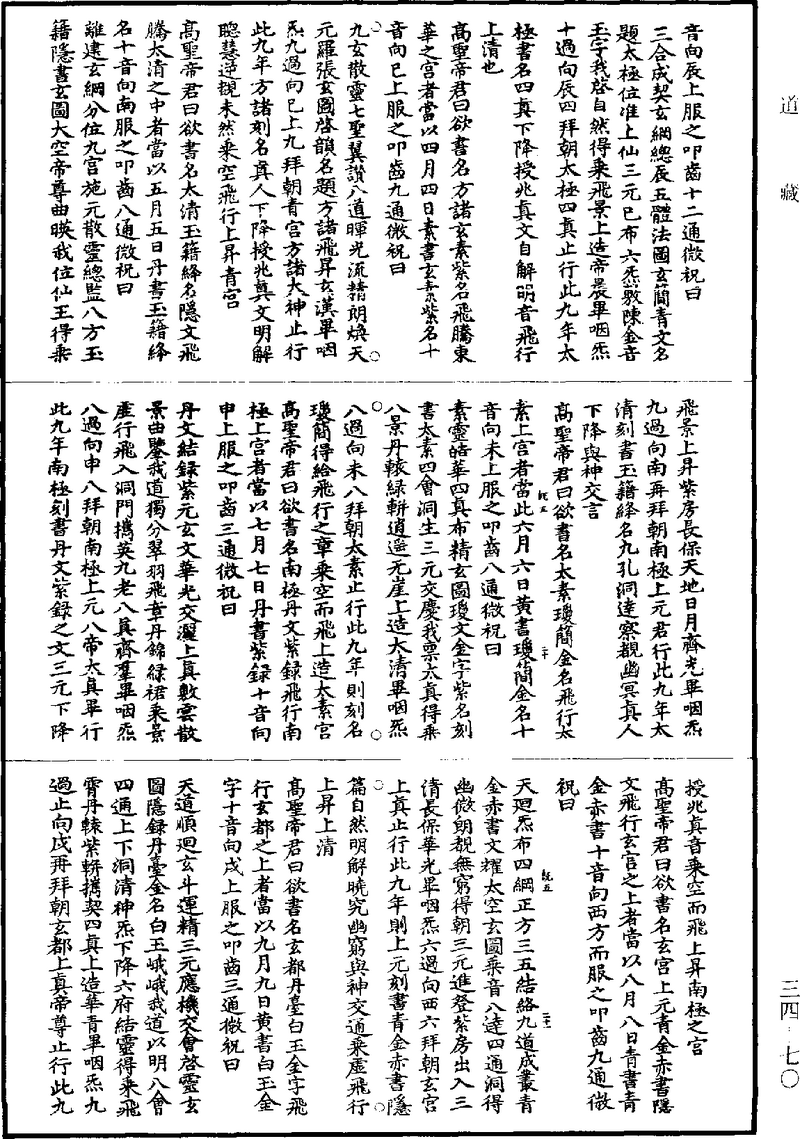 道藏
三四·七〇
音向辰上服之叩齒十二通微祝曰
三合成契玄綱總辰五體法圖玄簡青文名
題太極位准上仙三元已布六炁敷陳金音
玉字我啓自然得乘飛景上造帝晨畢咽炁
十過向辰四拜朝太極四真止行此九年太
極書名四真下降授兆真文自解明音飛行
上清也
高聖帝君曰欲書名方諸玄素紫名飛騰東
華之宮者當以四月四日素書玄素紫名十
音向巳上服之叩齒九通微祝曰
九玄散靈七聖翼讚八道暉光流精朗煥天
元羅張玄圖啓韻名題方諸飛昇玄漢畢咽
炁九過向巳上九拜朝青宮方諸大神止行
此九年方諸刻名真人下降授兆真文明解
聰慧逆覩未然乘空飛行上昇青宮
高聖帝君曰欲書名太清玉籍絳名隱文飛
騰太清之中者當以五月五日丹書玉籍絳
名十音向南服之叩齒八通微祝曰
離建玄綱分位九宮施元散靈總監八方玉
籍隱書玄圖大空帝尊曲暎我位仙王得乘
飛景上昇紫房長保天地日月齊光畢咽炁
九過向南再拜朝南極上元君行此九年太
清刻書玉籍絳名九孔洞達察覩幽冥真人
下降與神交言
高聖帝君曰欲書名太素瓊簡金名飛行太
素上宮者當此六月六日黃書瓊簡金名十
音向未上服之叩齒八通微祝曰
素靈皓華四真布精玄圖瓊文金字紫名刻
書太素四會洞生三元交慶我稟太真得乘
八景丹轅綠軿逍遥元崖上造大清畢咽炁
八過向未八拜朝太素止行此九年則刻名
瓊簡得給飛行之章乘空而飛上造太素宮
高聖帝君曰欲書名南極丹文紫録飛行南
極上宮者當以七月七日丹書紫録十音向
申上服之叩齒三通微祝曰
丹文結録紫元玄文華光交灑上真敷雲散
景曲鑒我道獨分翠羽飛章丹錦緑裙乘景
虛行飛入洞門攜英九老八真齊羣畢咽炁
八過向申八拜朝南極上元八帝太真畢行
此九年南極刻書丹文紫録之文三元下降
授兆真音乘空而飛上昇南極之宮
高聖帝君曰欲書名玄宮上元青金赤書隱
文飛行玄宮之上者當以八月八日青書青
金赤書十音向西方而服之叩齒九通微
祝曰
天廻炁布四綱正方三五結絡九道成叢青
金赤書文耀太空玄圖乘音八達四通洞得
幽微朗覩無窮得朝三元進登紫房出入三
清長保華光畢咽炁六過向西六拜朝玄宮
上真止行此九年則上元刻書青金赤書隱
篇自然明解曉究幽窮與神交通乘虛飛行
上昇上清
高聖帝君曰欲書名玄都丹臺白玉金字飛
行玄都之上者當以九月九日黃書白玉金
字十音向戌上服之叩齒三通微祝曰
天道順迴玄斗運精三元應機交會啓靈玄
圖隱録丹臺金名白玉峨峨我道以明八會
四通上下洞清神炁下降六府結靈得乘飛
霄丹轅紫軿攜契四真上造華青畢咽炁九
過止向戌再拜朝玄都上真帝尊止行此九